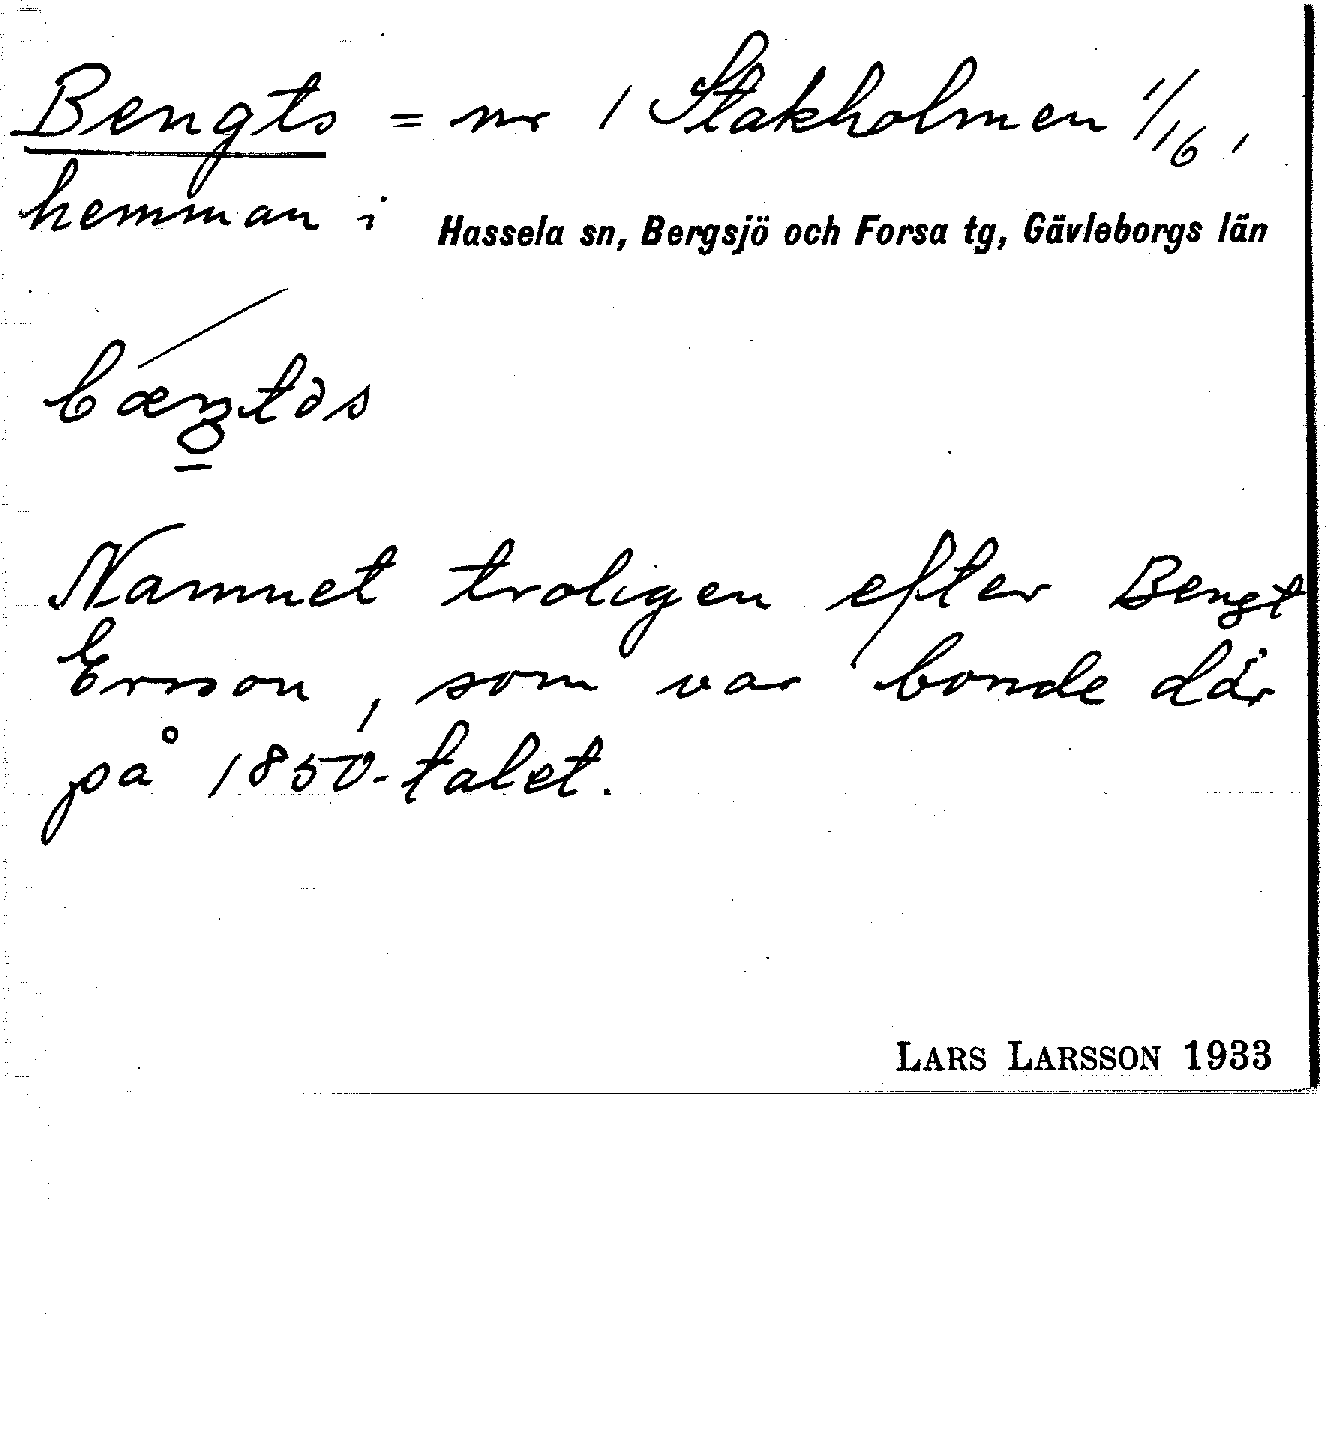 Bengts = nr 1 Stakholmen 1/16,
hemman i Hassela sn, Bergsjö och Forsa tg, Gävleborgs län
Namnet troligen efter Bengt
Ersson, som var bonde där
på 1850-talet.
LARS LARSSON 1933